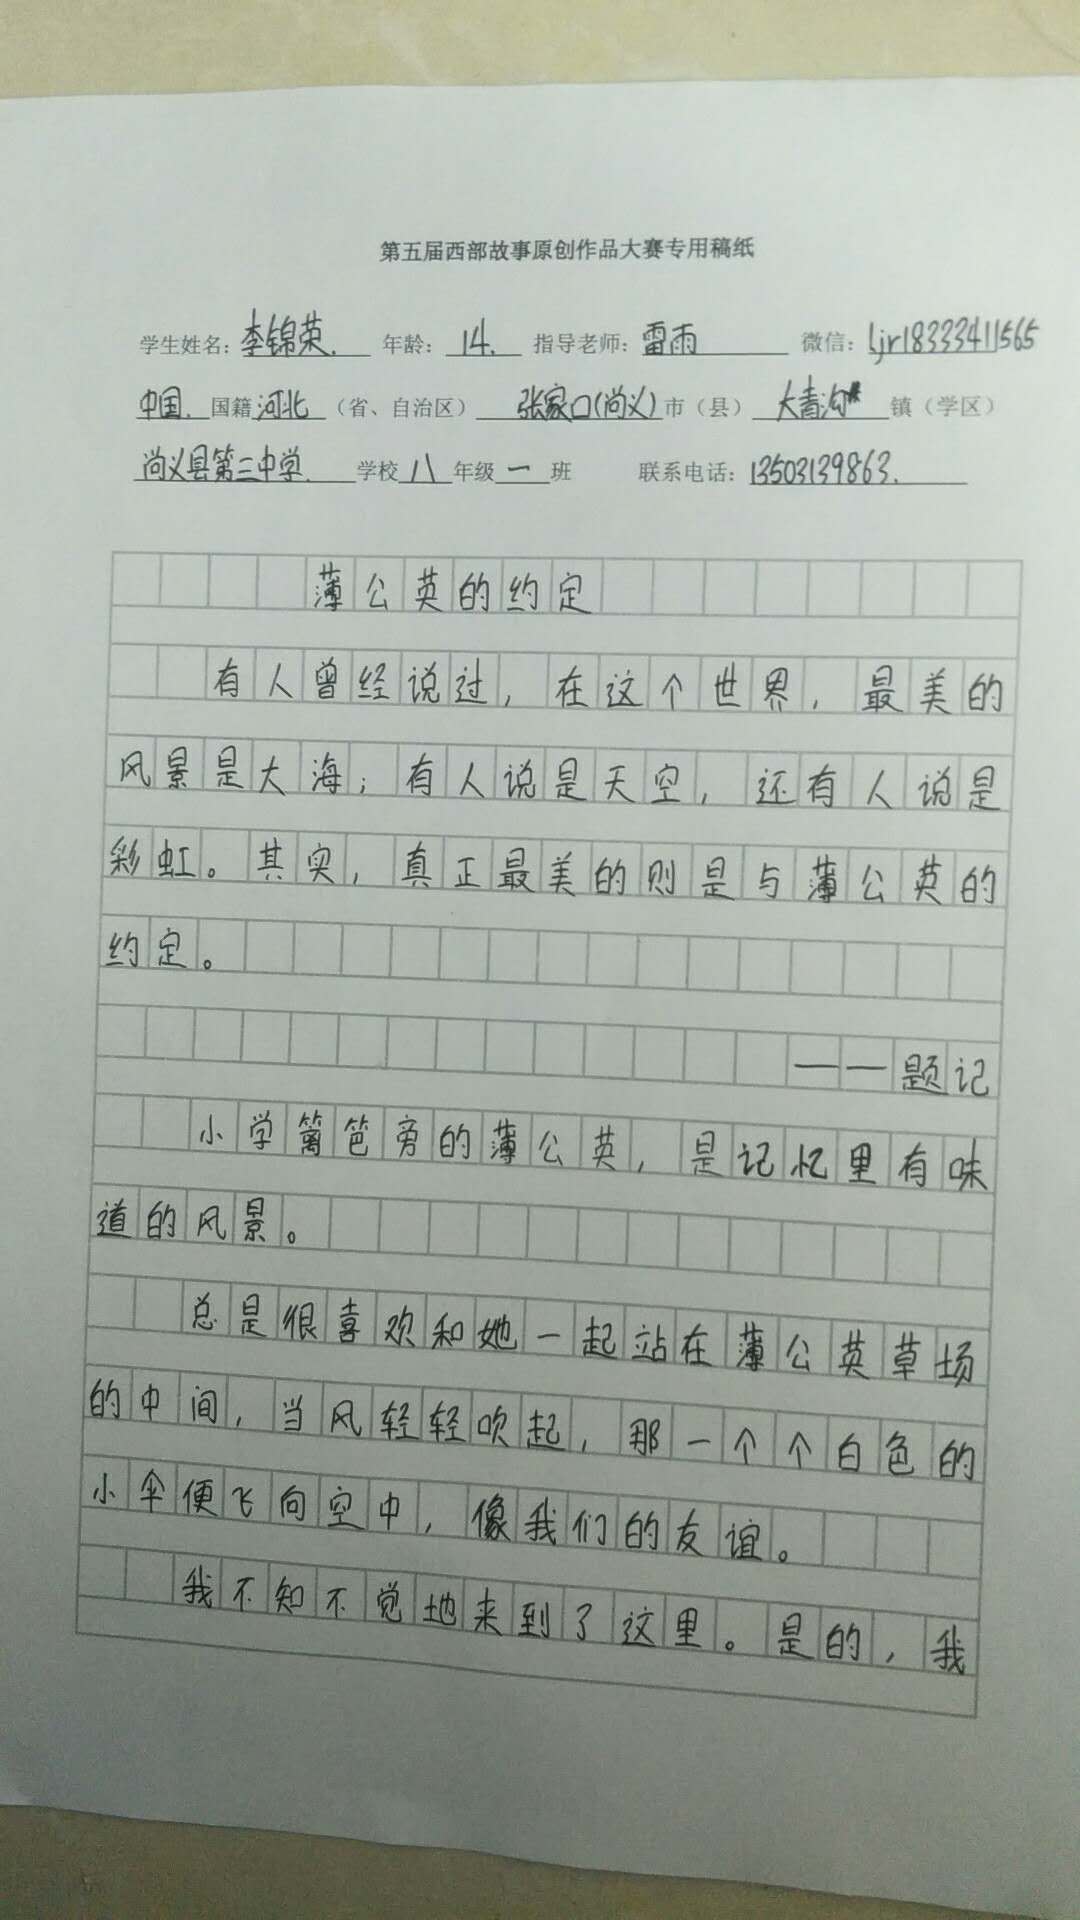 第五届西部故事原创作品大赛专用稿纸
学生姓名：李锦荣. 年龄：14. 指导老师：雷雨 微信：ljr18333411565
中国. 国籍 河北 （省、自治区） 张家口(尚义) 市（县） 大青沟 镇（学区）
尚义县第三中学. 学校 八 年级 一 班 联系电话：13503139863.
薄公英的约定
有人曾经说过，在这个世界，最美的
风景是大海；有人说是天空，还有人说是
彩虹。其实，真正最美的则是与薄公英的
约定。
——题记
小学篱笆旁的薄公英，是记忆里有味
道的风景。
总是很喜欢和她一起站在薄公英草场
的中间，当风轻轻吹起，那一个个白色的
小伞便飞向空中，像我们的友谊。
我不知不觉地来到了这里。是的，我